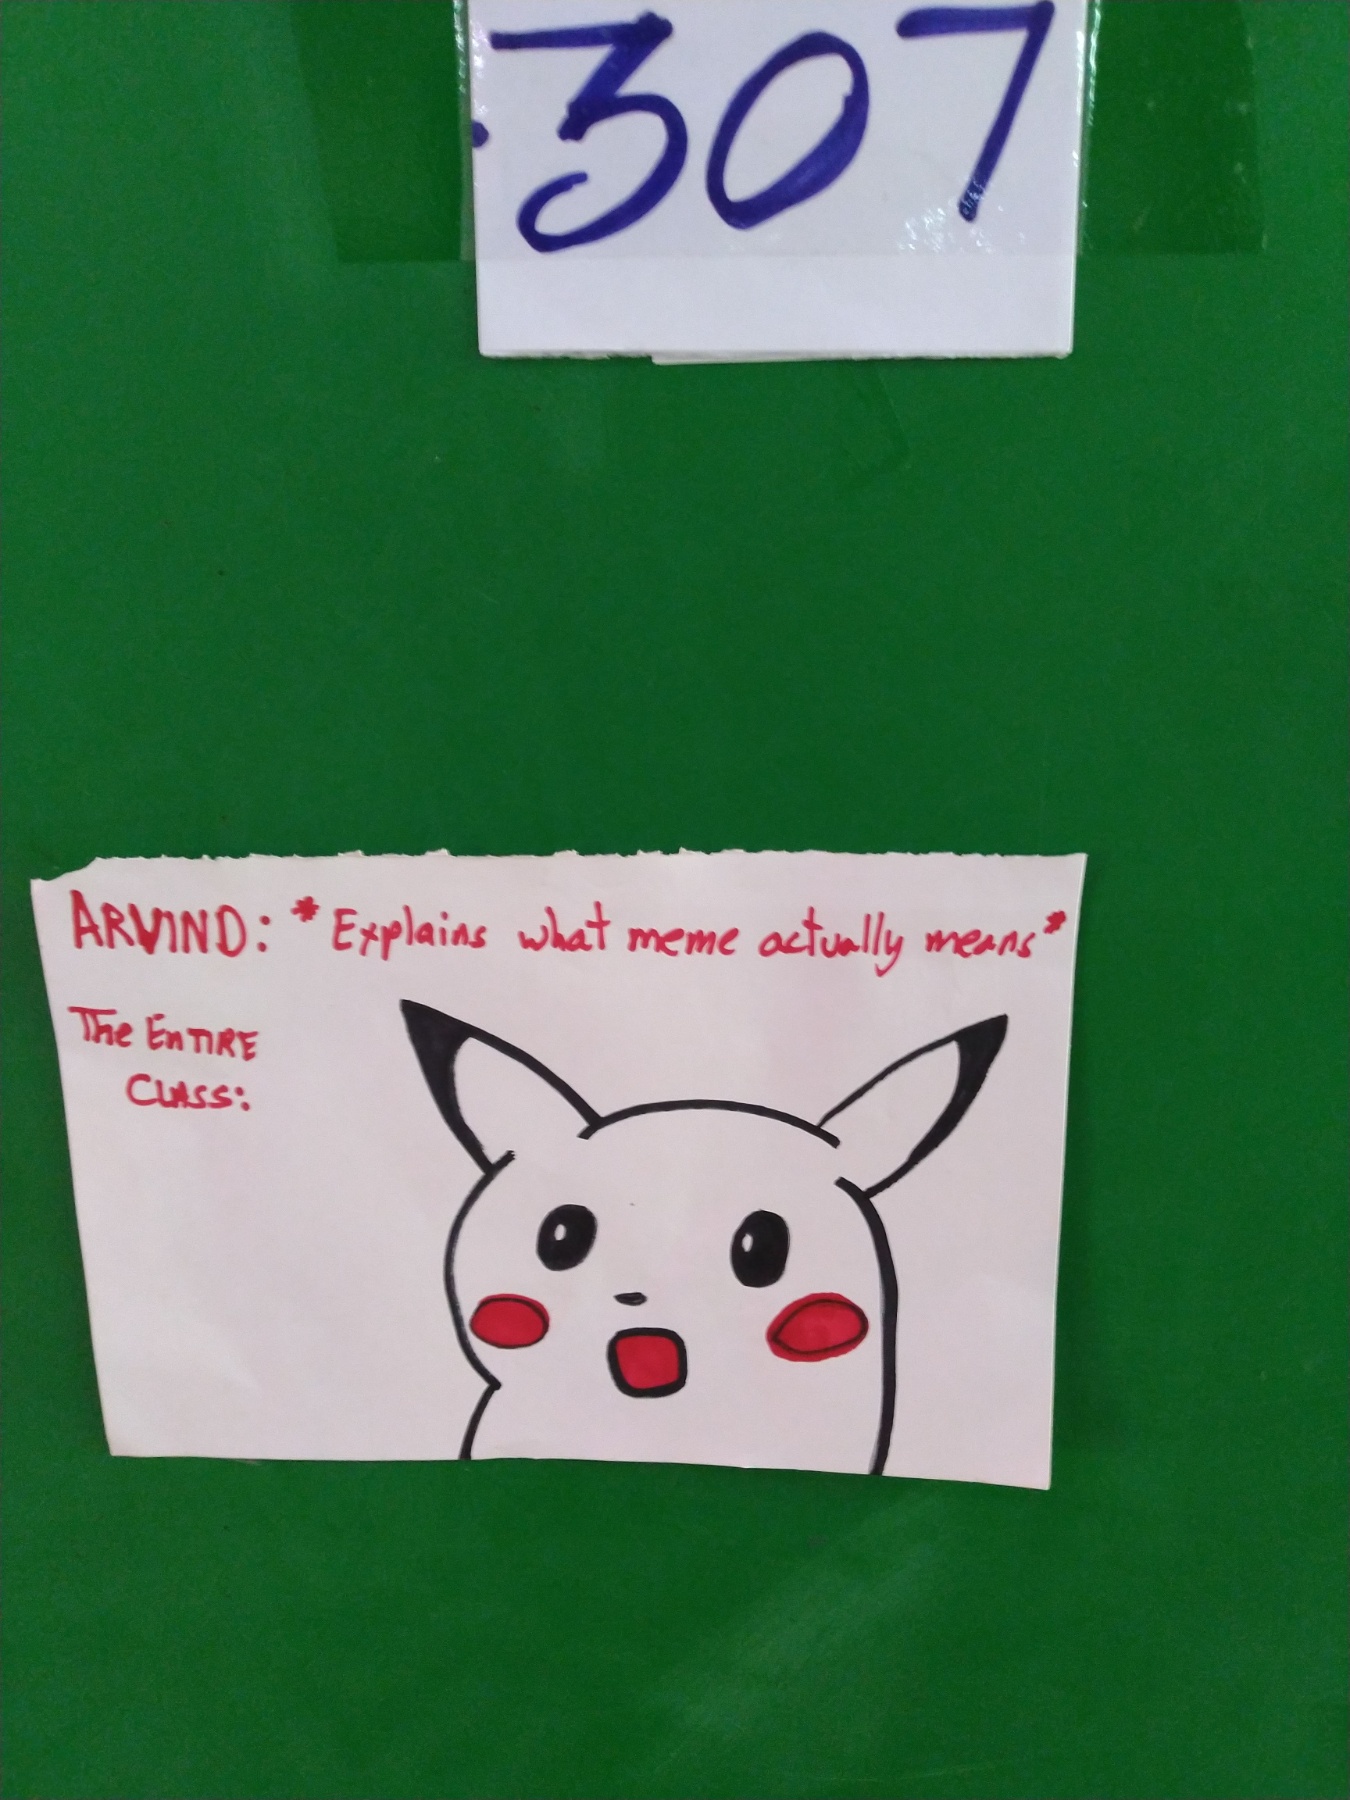 307
ARVIND: *Explains what meme actually means*
The EnTIRE
CLASS: